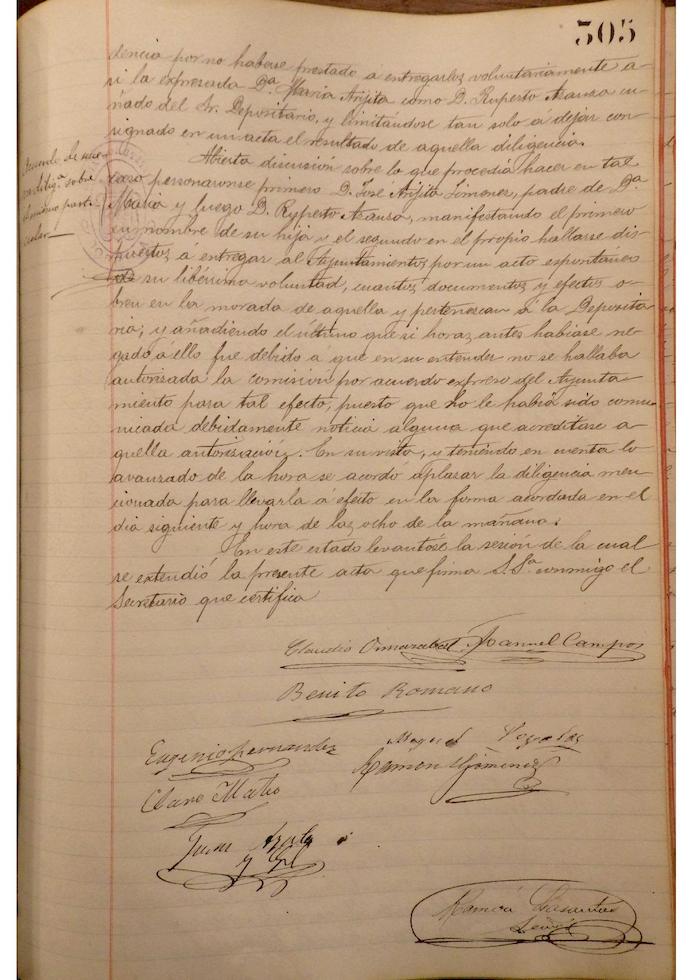 305
dencia por no haberse prestado á entregarlos voluntariamente a-
si la expresada D.ª María Arijita como D. Ruperto Mausa cu-
ñado del Sr. Depositario, y limitándose tan solo a dejar con-
signado en un acta el resultado de aquella diligencia.
Acuerdo de
sobre
Abierta discusión sobre lo que procedía hacer en tal
caso personaronse primero D. José Arijita Jimenez, padre de D.ª
María y luego D. Ruperto Mausa, manifestando el primero
en nombre de su hija y el segundo en el propio hallarse dis-
puestos a entregar al Ayuntamiento, por un acto espontáneo
de su libérrima voluntad, cuantos documentos y efectos o-
bren en la morada de aquella y pertenezcan á la Deposita-
ria; y añadiendo el último que si horas antes habíase ne-
gado á ello fue debido a que en su entender no se hallaba
autorizada la comisión por acuerdo expreso del Ayunta-
miento para tal efecto, puesto que no le había sido comu-
nicada debidamente noticia alguna que acreditase a-
quella autorización. En su vista, y teniendo en cuenta lo
avanzado de la hora se acordó aplazar la diligencia men-
cionada para llevarla á efecto en la forma acordada en el
día siguiente y hora de las ocho de la mañana.
En este estado levantóse la sesión de la cual
se extendió la presente acta que firma S. Sª conmigo el
Secretario que certifica
Claudio Manuel Campos
Benito Romano
Eugenio Fernandez Miguel
Claro Mateo Ramón Gimenez
Juan
y Gil
Ramón